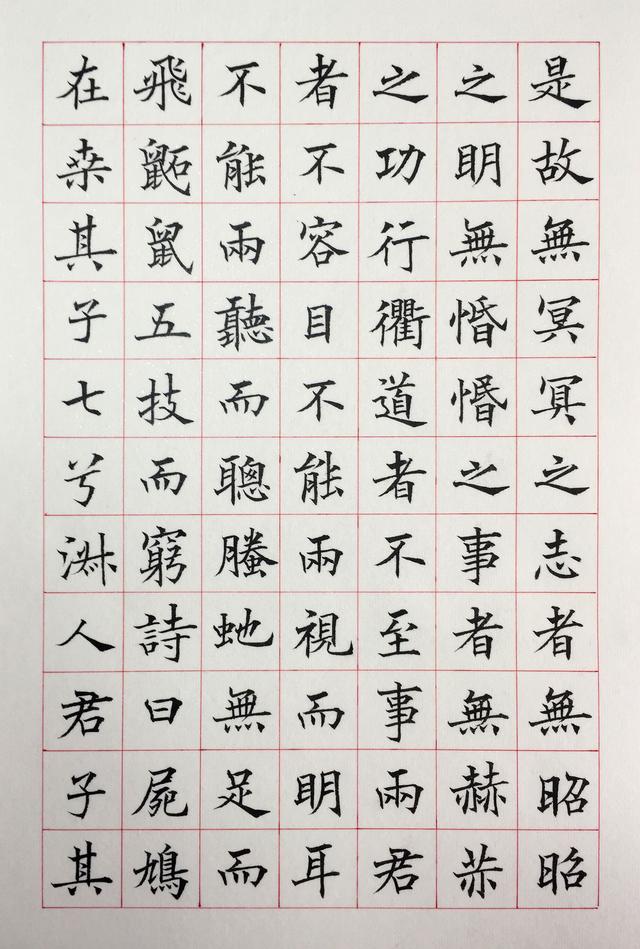 是故無冥冥之志者無昭昭
之明無惛惛之事者無赫赫
之功行衢道者不至事兩君
者不容目不能兩視而明耳
不能兩聽而聰螣虵無足而
飛鼫鼠五技而窮詩曰屍鳩
在桒其子七兮淑人君子其